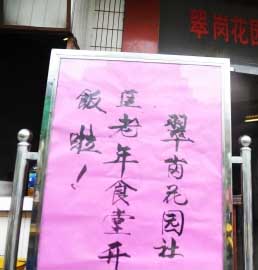 翠岗花园
翠岗花园社
区老年食堂开
饭啦！